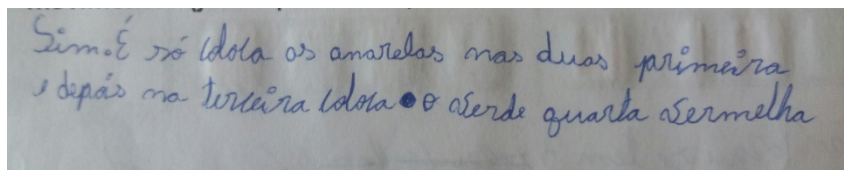 Sim. É só coloca os amarelas nas duas primeira
e depois na terceira coloca o verde quarta vermelha